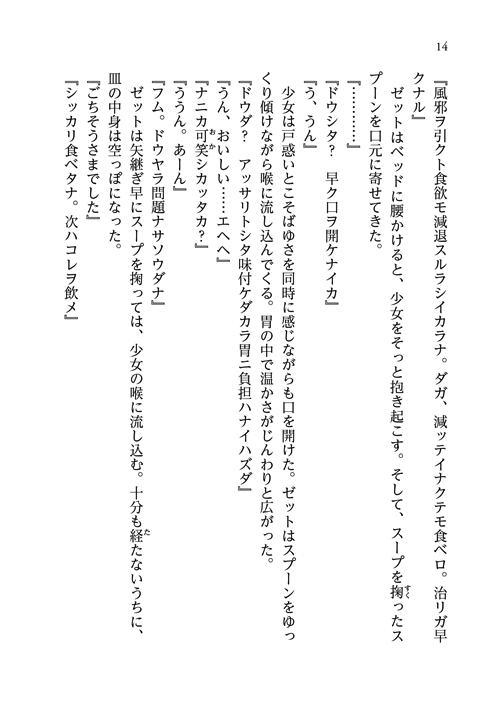 14
『風邪ヲ引クト食欲モ減退スルラシイカラナ。ダガ、減ッテイナクテモ食ベロ。治リガ早
クナル』
　ゼットはベッドに腰かけると、少女をそっと抱き起こす。そして、スープを掬すくったス
プーンを口元に寄せてきた。
『…………』
『ドウシタ？　早ク口ヲ開ケナイカ』
『う、うん』
　少女は戸惑いとこそばゆさを同時に感じながらも口を開けた。ゼットはスプーンをゆっ
くり傾けながら喉に流し込んでくる。胃の中で温かさがじんわりと広がった。
『ドウダ？　アッサリトシタ味付ケダカラ胃ニ負担ハナイハズダ』
『うん、おいしい……エヘヘ』
『ナニカ可笑おかシカッタカ？』
『ううん。あーん』
『フム。ドウヤラ問題ナサソウダナ』
　ゼットは矢継ぎ早にスープを掬っては、少女の喉に流し込む。十分も経たたないうちに、
皿の中身は空っぽになった。
『ごちそうさまでした』
『シッカリ食ベタナ。次ハコレヲ飲メ』